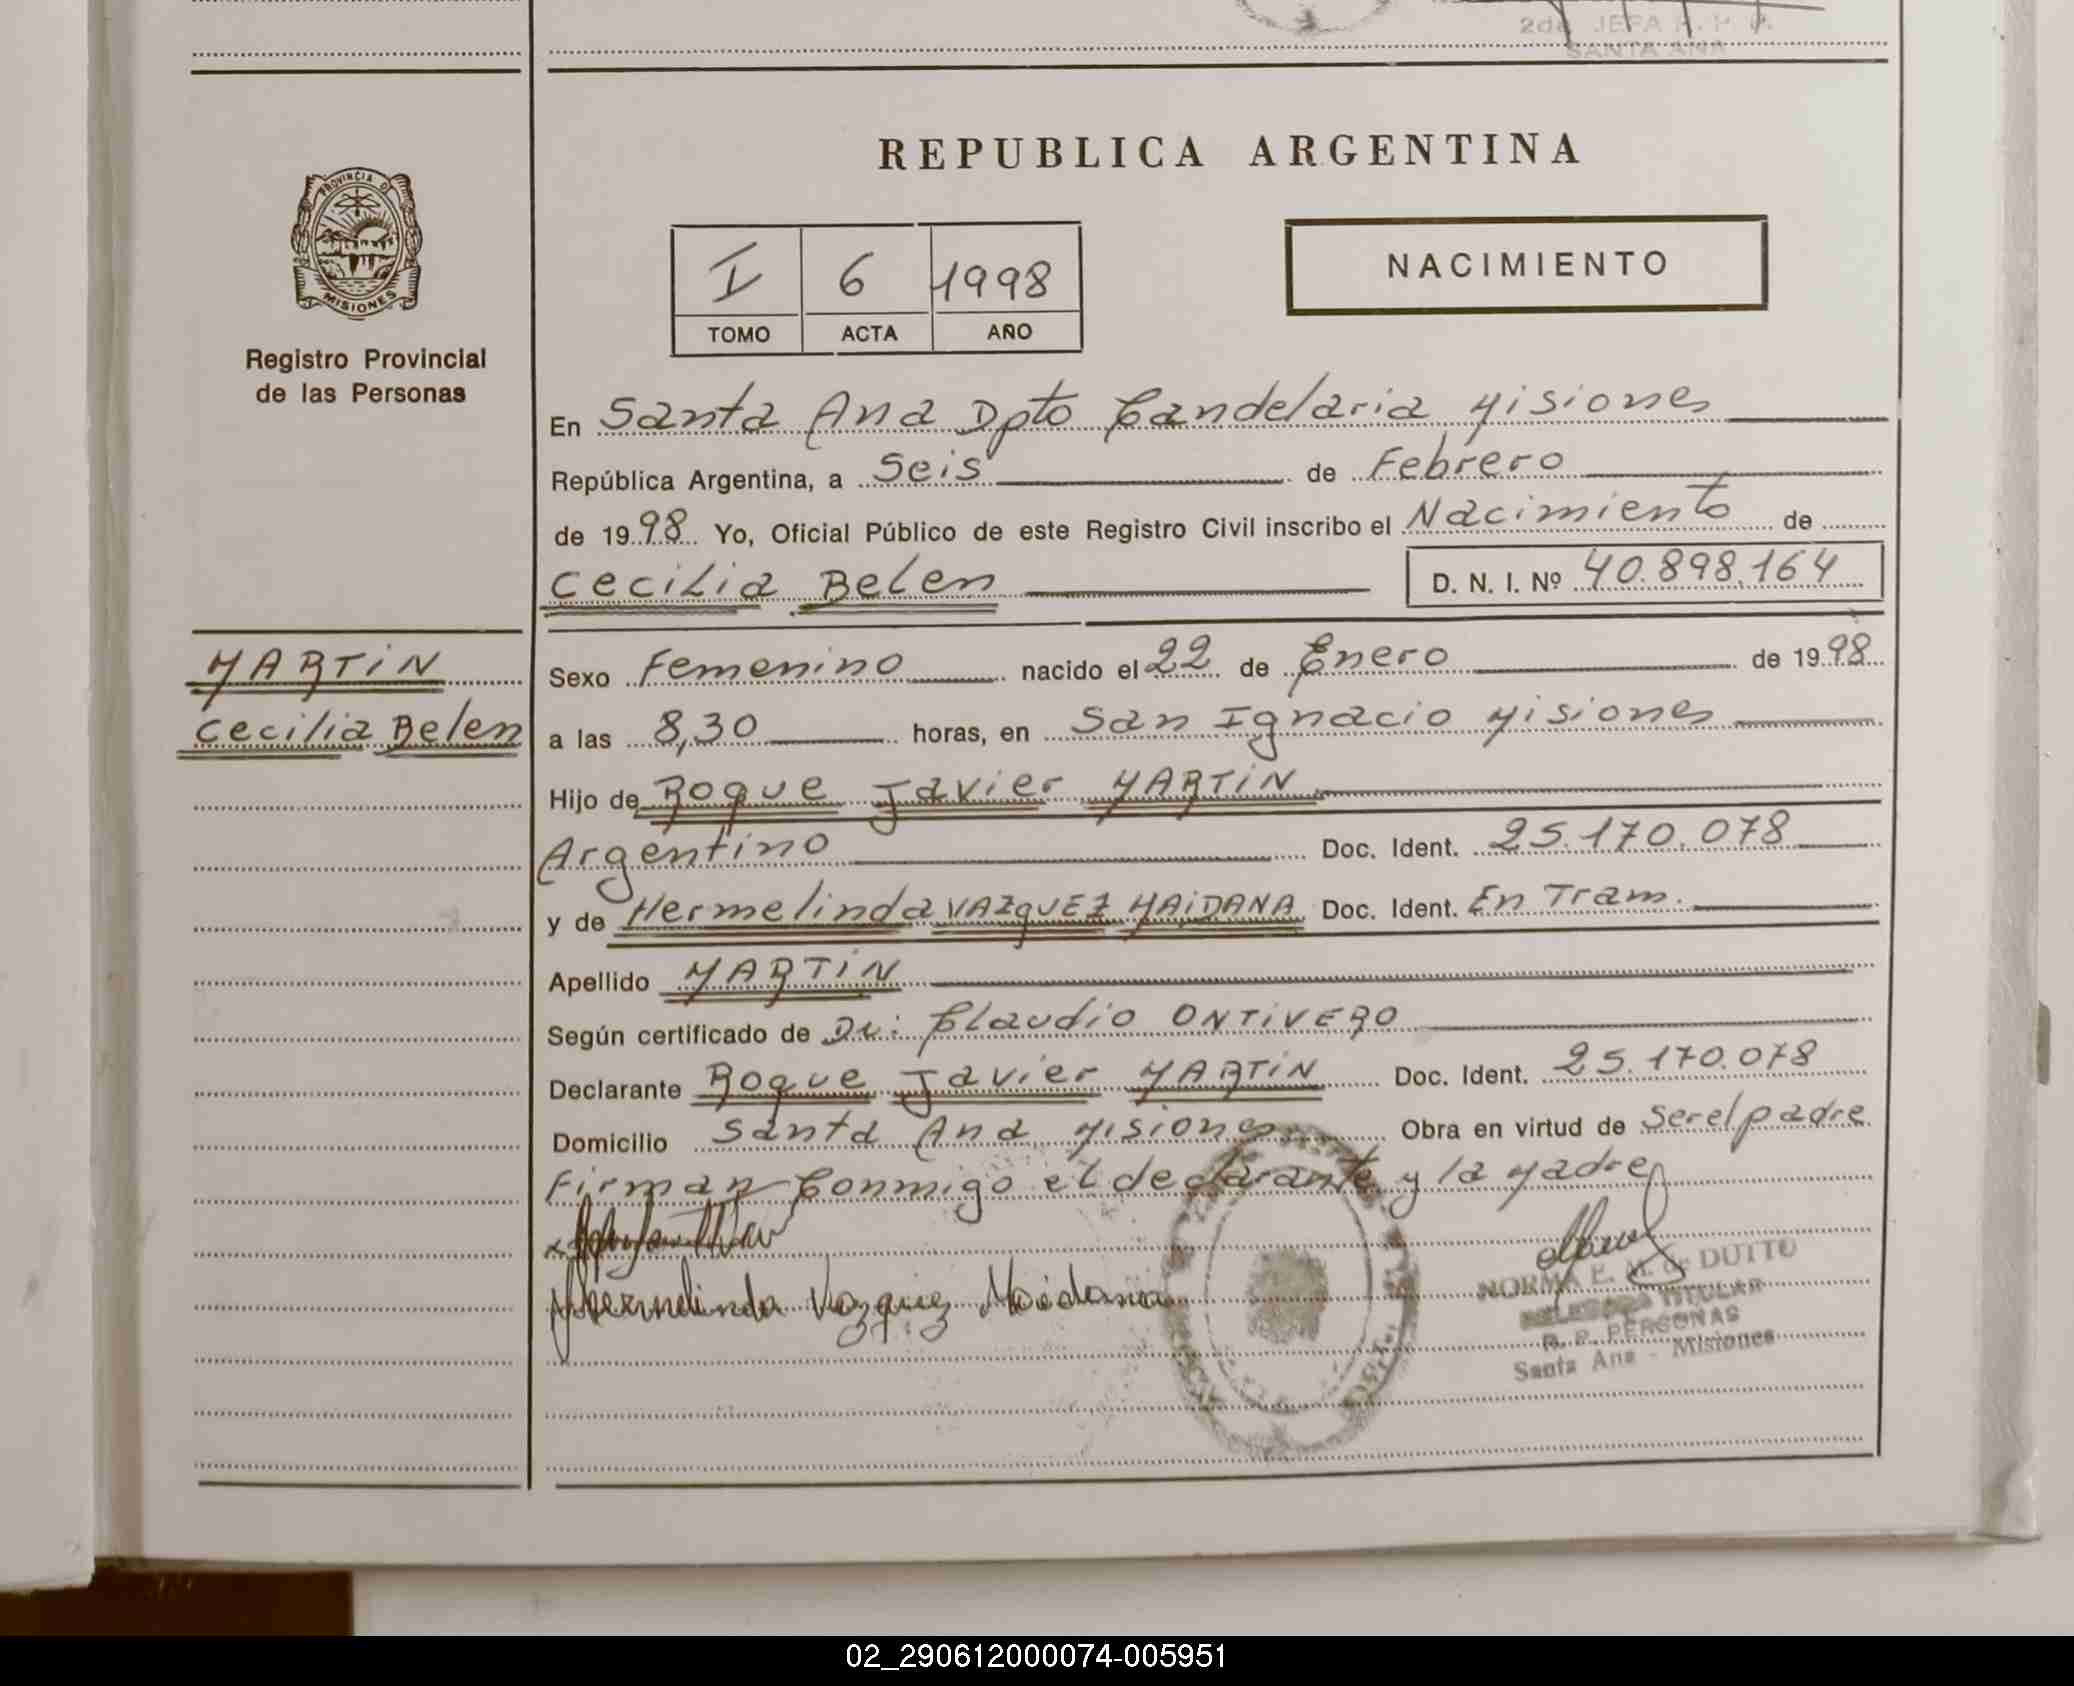 2da JEFA R. P. P.
SANTA ANA
PROVINCIA DE
MISIONES
Registro Provincial
de las Personas
REPUBLICA ARGENTINA
I 6 1998
TOMO ACTA AÑO
NACIMIENTO
En Santa Ana Dpto Candelaria Misiones
República Argentina, a Seis de Febrero
de 1998 Yo, Oficial Público de este Registro Civil inscribo el Nacimiento de
Cecilia Belen D. N. I. Nº 40.898.164
MARTiN
Cecilia Belen
Sexo Femenino nacido el 22 de Enero de 1998
a las 8,30 horas, en San Ignacio Misiones
Hijo de Roque Javier MARTiN
Argentino Doc. Ident. 25.170.078
y de Hermelinda VAZQUEZ MAiDANA Doc. Ident. En Tram.
Apellido MARTiN
Según certificado de Dr: Claudio ONTiVERO
Declarante Roque Javier MARTiN Doc. Ident. 25.170.078
Domicilio Santa Ana Misiones Obra en virtud de Ser el padre
Firman Conmigo el declarante y la Madre
Hermelinda Vazquez Maidana
NORMA E. M. de DUTTO
DELEGADA TITULAR
R. P. PERSONAS
Santa Ana - Misiones
02_290612000074-005951